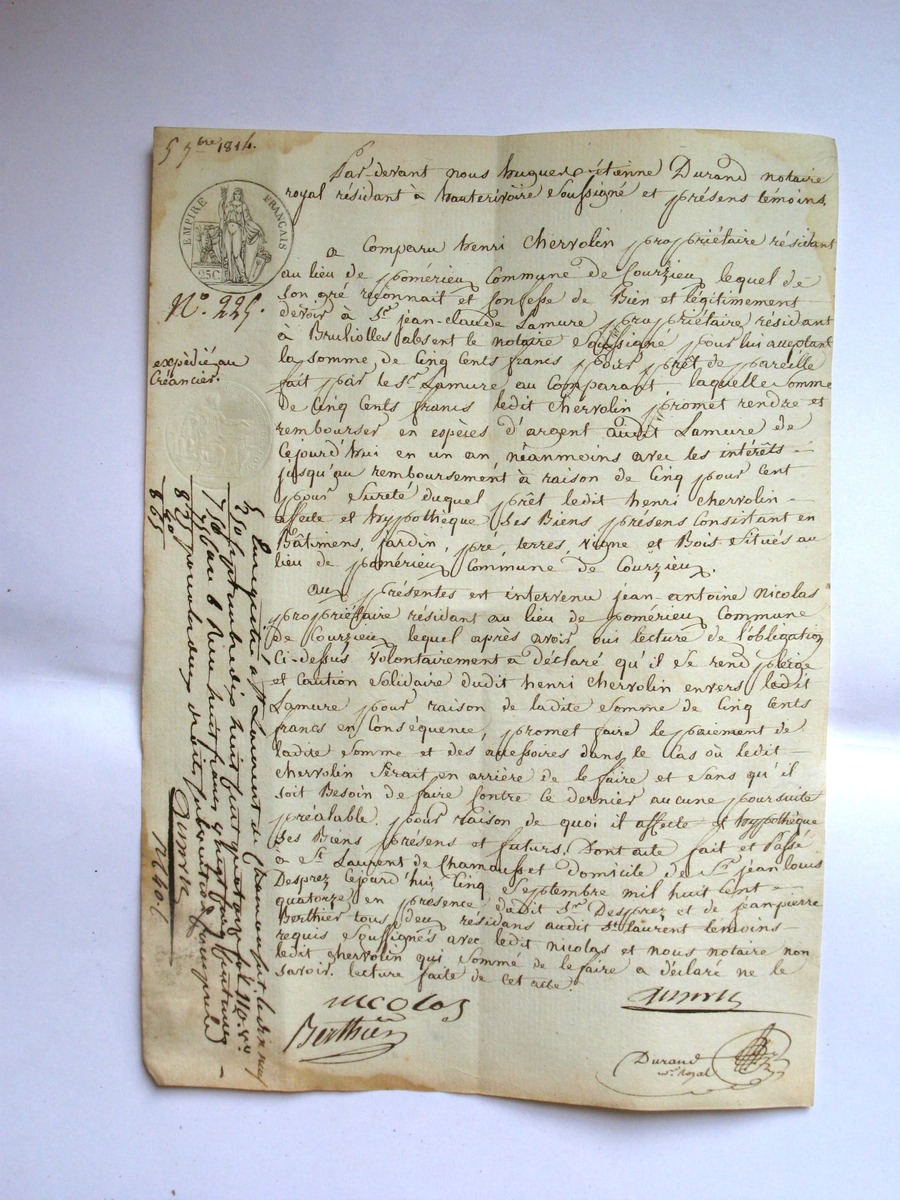 5 7bre 1814.
EMPIRE FRANÇAIS
25C
N° 225.
expédié au
Créancier.
Par-devant nous hugues-étienne Durand notaire
royal résidant à hauterivoire soussigné et présens témoins
a Comparu henri Chervolin propriétaire résidant
au lieu de pomérieu Commune de Courzieu lequel de
son gré reconnait et Confesse de Bien et légitimement
devoir à Sr. jean-claude Lamure propriétaire résidant
à Brulioles absent le notaire soussigné pour lui acceptant
la somme de Cinq Cents francs pour prêt de pareille
fait par le Sr. Lamure au Comparant laquelle somme
de Cinq Cents francs ledit Chervolin promet rendre et
rembourser en espèces d'argent audit Lamure de
Cejourd'hui en un an néanmoins avec les intérêts
jusqu'au remboursement à raison de Cinq pour Cent
pour sureté duquel prêt ledit henri Chervolin
affecte et hypothèque ses Biens présens Consistant en
Bâtimens, jardin, pré, terres, vigne et Bois situés au
lieu de pomérieu Commune de Courzieu.
aux présentes est intervenu jean-antoine Nicolas
propriétaire résidant au lieu de pomérieu Commune
de Courzieu lequel après avoir oui lecture de l'obligation
Ci-dessus volontairement a déclaré qu'il se rend pleige
et Caution solidaire dudit henri Chervolin envers ledit
Lamure pour raison de ladite somme de Cinq Cents
francs en Conséquence, promet faire le paiement de
ladite somme et des accessoires dans le Cas où ledit
Chervolin serait en arrière de le faire et sans qu'il
soit Besoin de faire Contre Ce dernier aucune poursuite
préalable. pour raison de quoi il affecte et hypothèque
ses Biens présens et futurs. Dont acte fait et Passé
à St. Laurent de Chamousset domicile de Sr. jean louis
Desprez Cejourd'hui Cinq Septembre mil huit Cent
quatorze en présence dudit Sr. Desprez et de jean-pierre
Berthier tous deux résidans audit St. laurent témoins
requis soussignés avec ledit nicolas et nous notaire non
ledit Chervolin qui sommé de le faire a déclaré ne le
savoir. lecture faite de Cet acte.
nicolas
Berthier
Durand
nre. Royal
Enregistré à St Laurent de Chamousset le
Septembre dix huit cent quatorze fol.
huit francs
pour les deux droits